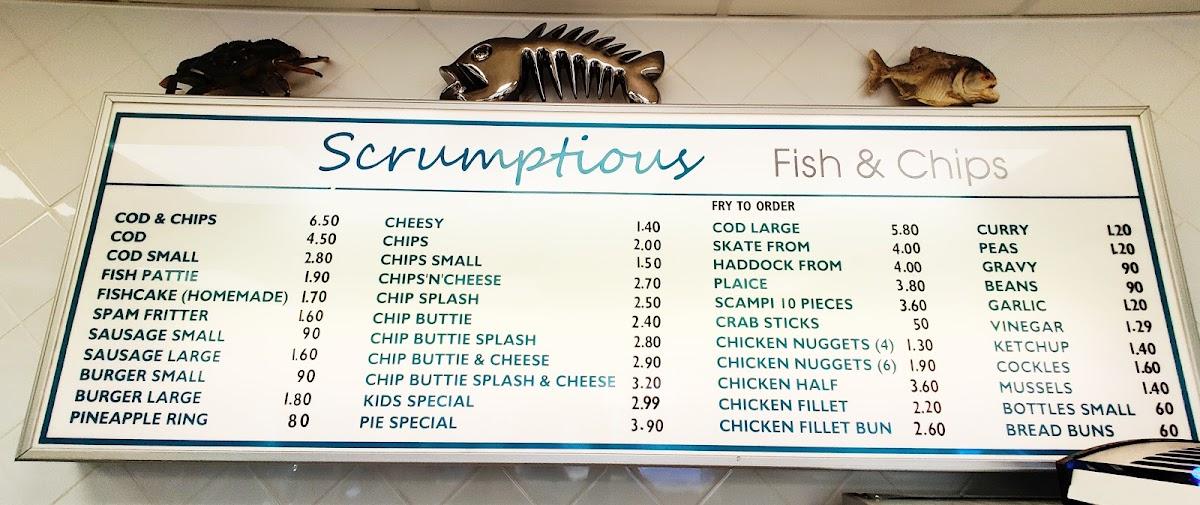 Scrumptious Fish & Chips
COD & CHIPS 6.50
COD 4.50
COD SMALL 2.80
FISH PATTIE 1.90
FISHCAKE (HOMEMADE) 1.70
SPAM FRITTER 1.60
SAUSAGE SMALL 90
SAUSAGE LARGE 1.60
BURGER SMALL 90
BURGER LARGE 1.80
PINEAPPLE RING 80
CHEESY 1.40
CHIPS 2.00
CHIPS SMALL 1.50
CHIPS'N'CHEESE 2.70
CHIP SPLASH 2.50
CHIP BUTTIE 2.40
CHIP BUTTIE SPLASH 2.80
CHIP BUTTIE & CHEESE 2.90
CHIP BUTTIE SPLASH & CHEESE 3.20
KIDS SPECIAL 2.99
PIE SPECIAL 3.90
FRY TO ORDER
COD LARGE 5.80
SKATE FROM 4.00
HADDOCK FROM 4.00
PLAICE 3.80
SCAMPI 10 PIECES 3.60
CRAB STICKS 50
CHICKEN NUGGETS (4) 1.30
CHICKEN NUGGETS (6) 1.90
CHICKEN HALF 3.60
CHICKEN FILLET 2.20
CHICKEN FILLET BUN 2.60
CURRY 1.20
PEAS 1.20
GRAVY 90
BEANS 90
GARLIC 1.20
VINEGAR 1.29
KETCHUP 1.40
COCKLES 1.60
MUSSELS 1.40
BOTTLES SMALL 60
BREAD BUNS 60